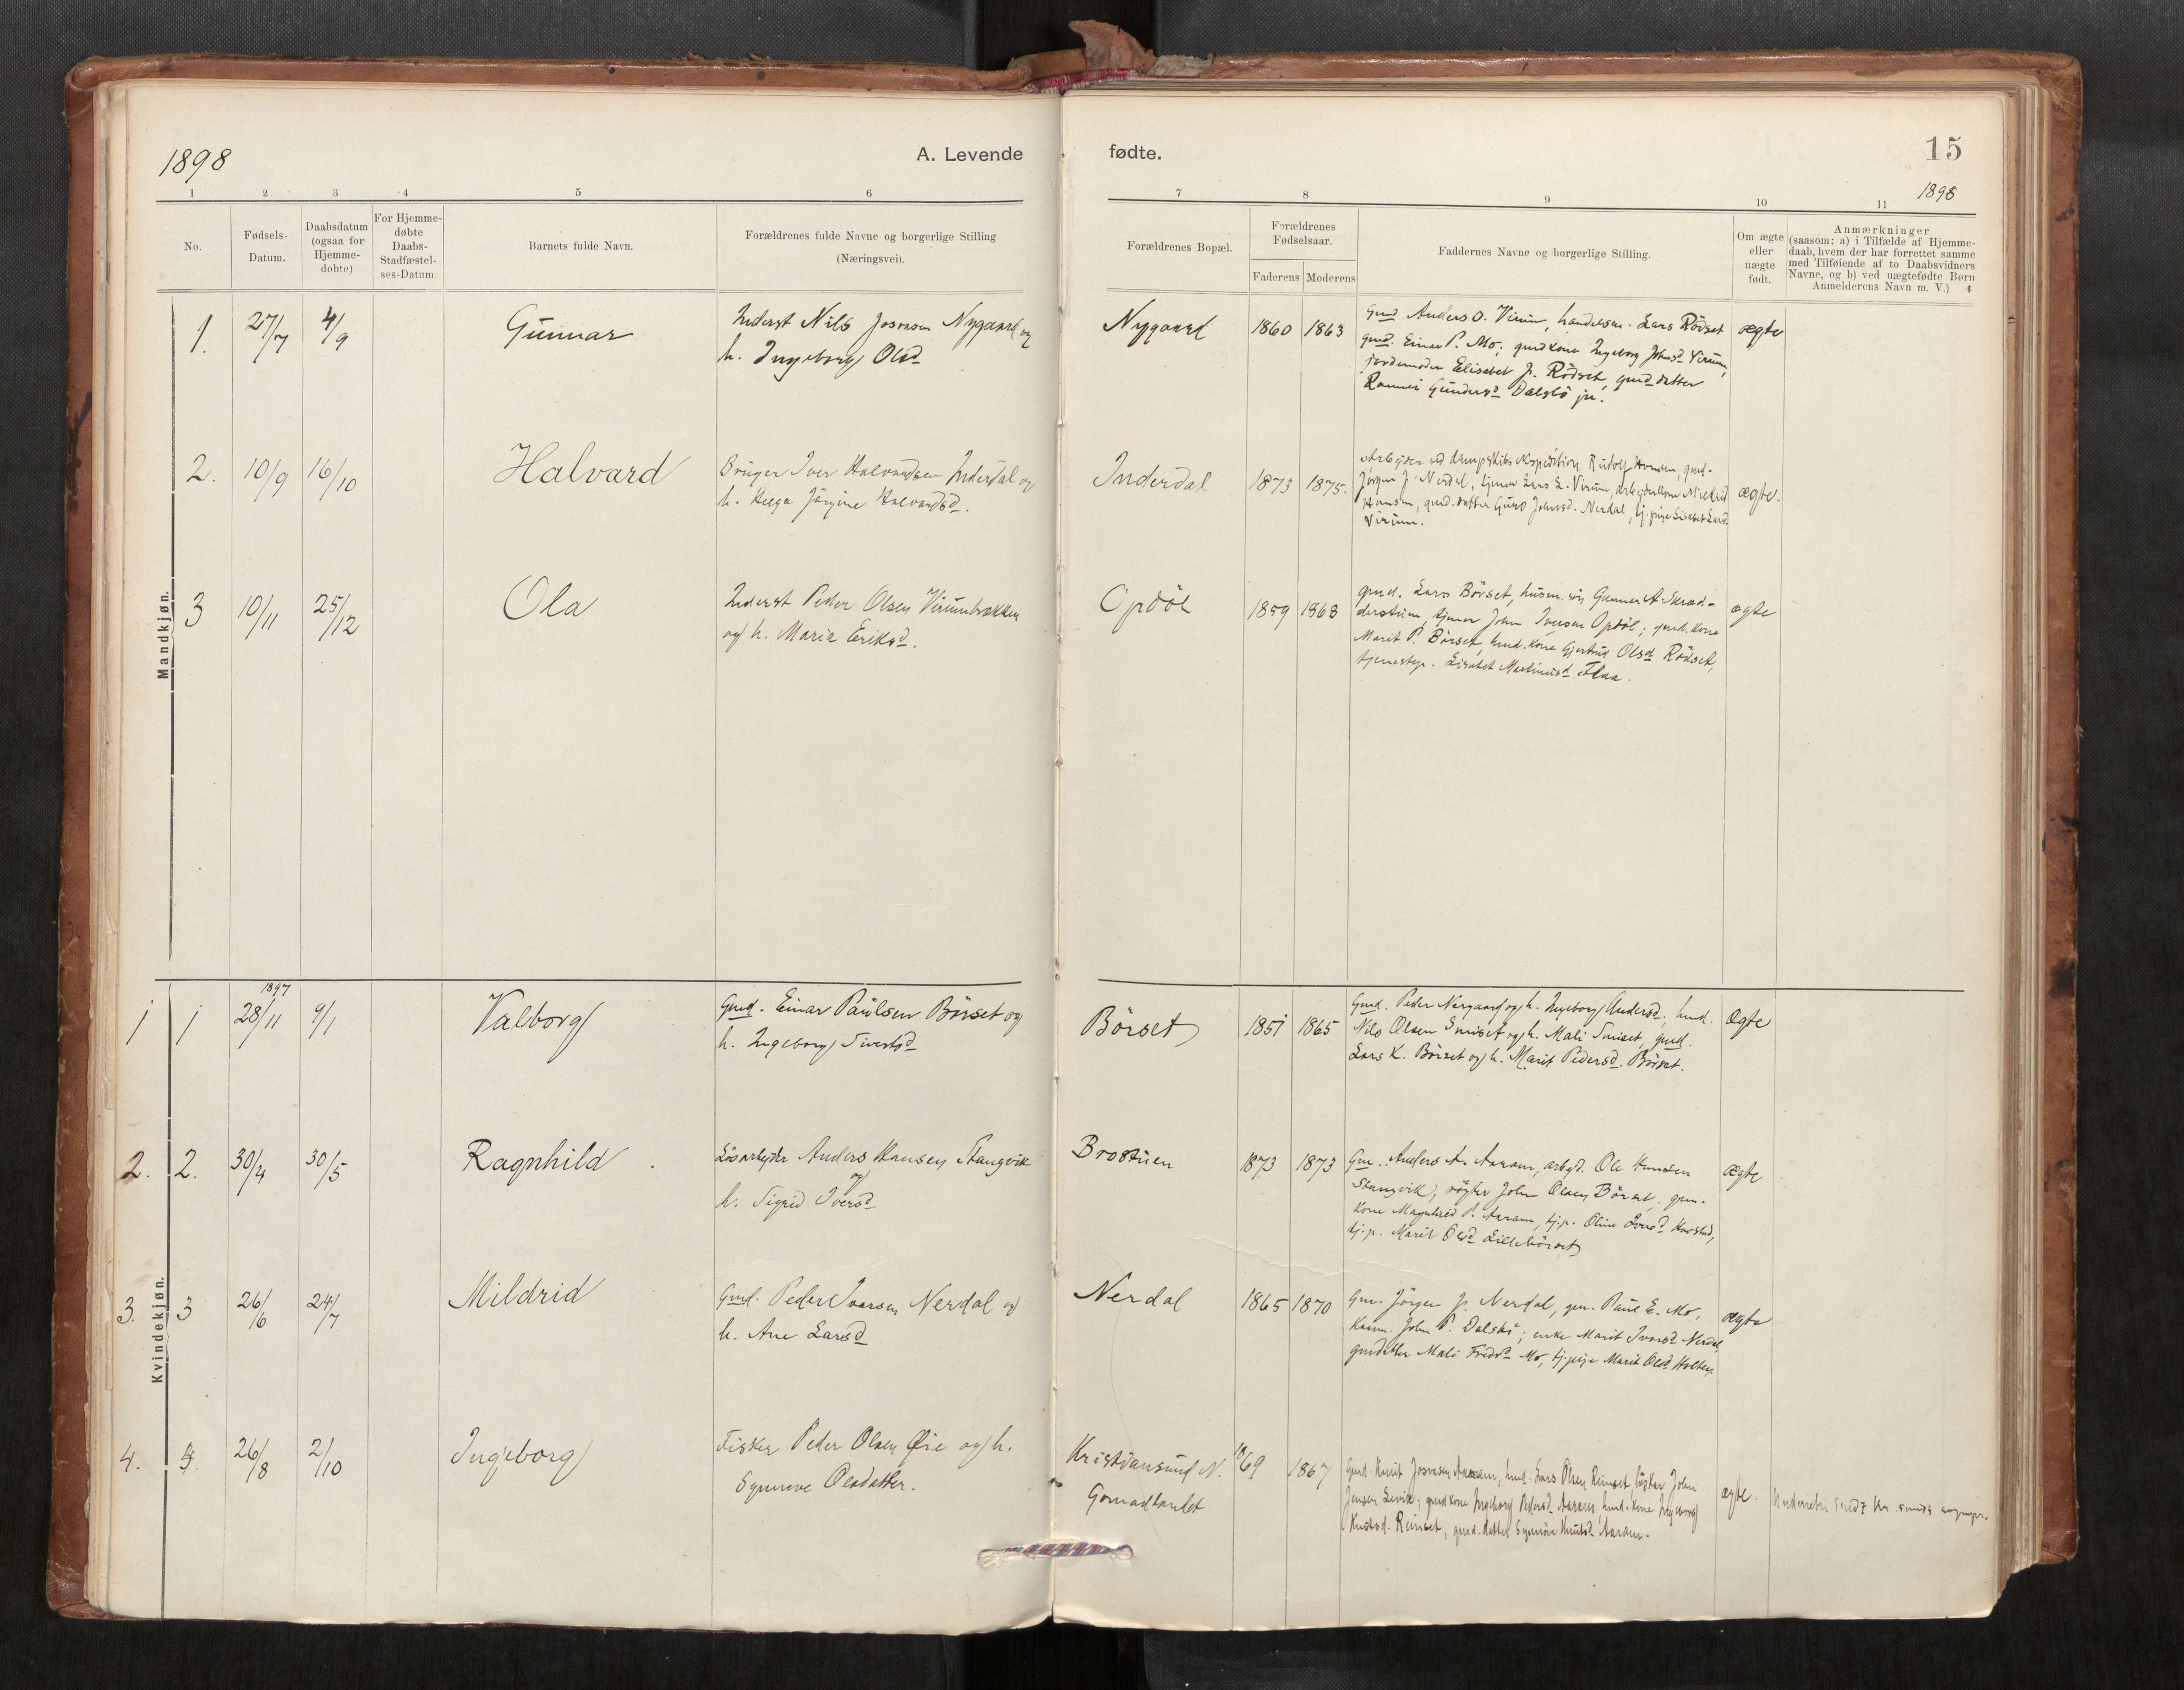 1898
A. Levende
fødte.
15
1898
1 2 3 4 5 6
7 8 9 10 11
No.
Fødsels-
Datum.
Daabsdatum
(ogsaa for
Hjemme-
døbte)
For Hjemme-
døbte
Daabs-
Stadfæstel-
ses-Datum.
Barnets fulde Navn.
Forældrenes fulde Navne og borgerlige Stilling
(Næringsvei).
Forældrenes Bopæl.
Forældrenes
Fødselsaar.
Faderens Moderens
Faddernes Navne og borgerlige Stilling.
Om ægte
eller
uægte
født.
Anmærkninger
(saasom: a) i Tilfælde af Hjemme-
daab, hvem der har forrettet samme
med Tilføiende af to Daabsvidners
Navne, og b) ved uægtefødte Børn
Anmelderens Navn m. V.)
Mandkjøn.
1. 27/7 4/9 Gunnar
Inderst Nils Nygaard og
h. Ingeborg Olsd
Nygaard 1860 1863
Gmd Anders O. Virum, handelsm. Lars Rödset
gmd. Einar P. Mo; gmdkone Ingeborg Johnsd Virum,
jordemoder Elisabet J. Rödset, gmd datter
Gundersd Dalsbö jr.
ægte
2. 10/9 16/10 Halvard
Bruger Iver Halvardsen Inderdal og
h. Helga Jörgine Halvardsd.
Inderdal 1873 1875.
Arbejder ved dampskibs Expedition Rudolf Hansen, gmd.
Jörgen J. Nerdal, tjener Lars L. Virum, arbejderkone
Hansen, gmd. datter Guro Johnsd. Nerdal, tj. pige Lisabet Larsd
Virum.
ægte.
3 10/11 25/12 Ola
Inderst Peder Olsen Virumbrækken
og h. Maria Eriksd.
Opdöl 1859 1868
gmd. Lars Börset, husm. sön Gunnar A. Skræd-
derstuen, tjener John Iversen Opdöl; gmd. kone
Marit P. Börset, hmd. kone Gjertrud Olsd Rödset,
tjenestep. Lisabet Martinusd. Flaa.
ægte
Kvindekjøn.
1 1 1897 28/11 9/1 Valborg
Gmd. Einar Paulsen Börset og
h. Ingeborg Sivertsd
Börset 1851 1865
Gmd. Peder Nergaard og h. Ingeborg Andersd; hmd.
Nils Olsen Smiset og h. Mali Smiset, gmd.
Lars K. Börset og h. Marit Pedersd. Börset.
Ægte
2. 2. 30/4 30/5 Ragnhild.
Lösarbejder Anders Hansen Stangvik
og
h. Sigrid Iversd
Brostuen 1873 1873
Gm. Anders A. Aaram, arbejd. Ole Hansen
Stangvik, røgter John Olsen Börset, gm.
kone Magnhild P. Aaram, tj.p. Oline Iversd
tj.p. Marit Olsd Lillebörset
Ægte
3. 3 26/6 24/7 Mildrid
Gmd. Peder Ivarsen Nerdal og
h. Ane Larsd
Nerdal 1865 1870
Gm. Jörgen J. Nerdal, gm. Paul E. Mo,
John P. Dalsbö; enke Marit Ivarsd Nerdal,
gmdatter Mali Mo, tj.pige Marit Olsd
ægte
4. 4. 26/8 2/10 Ingeborg
Fisker Peder Olsen Øie og h.
Synneve Olsdatter.
Kristiansund N. 1869 1867
Gomalandet
Gmd. Knut Aaram, hmd. Lars Olsen Rinset, John
Jensen Levik; gmdkone Ingeborg Pedersd. Aaram, hmd. kone Ingeborg
Knutsd. Rinset, gmd. datter Synnöve Knutsd. Aaram.
ægte.
Underretn. sendt Kr. sunds sognepr.